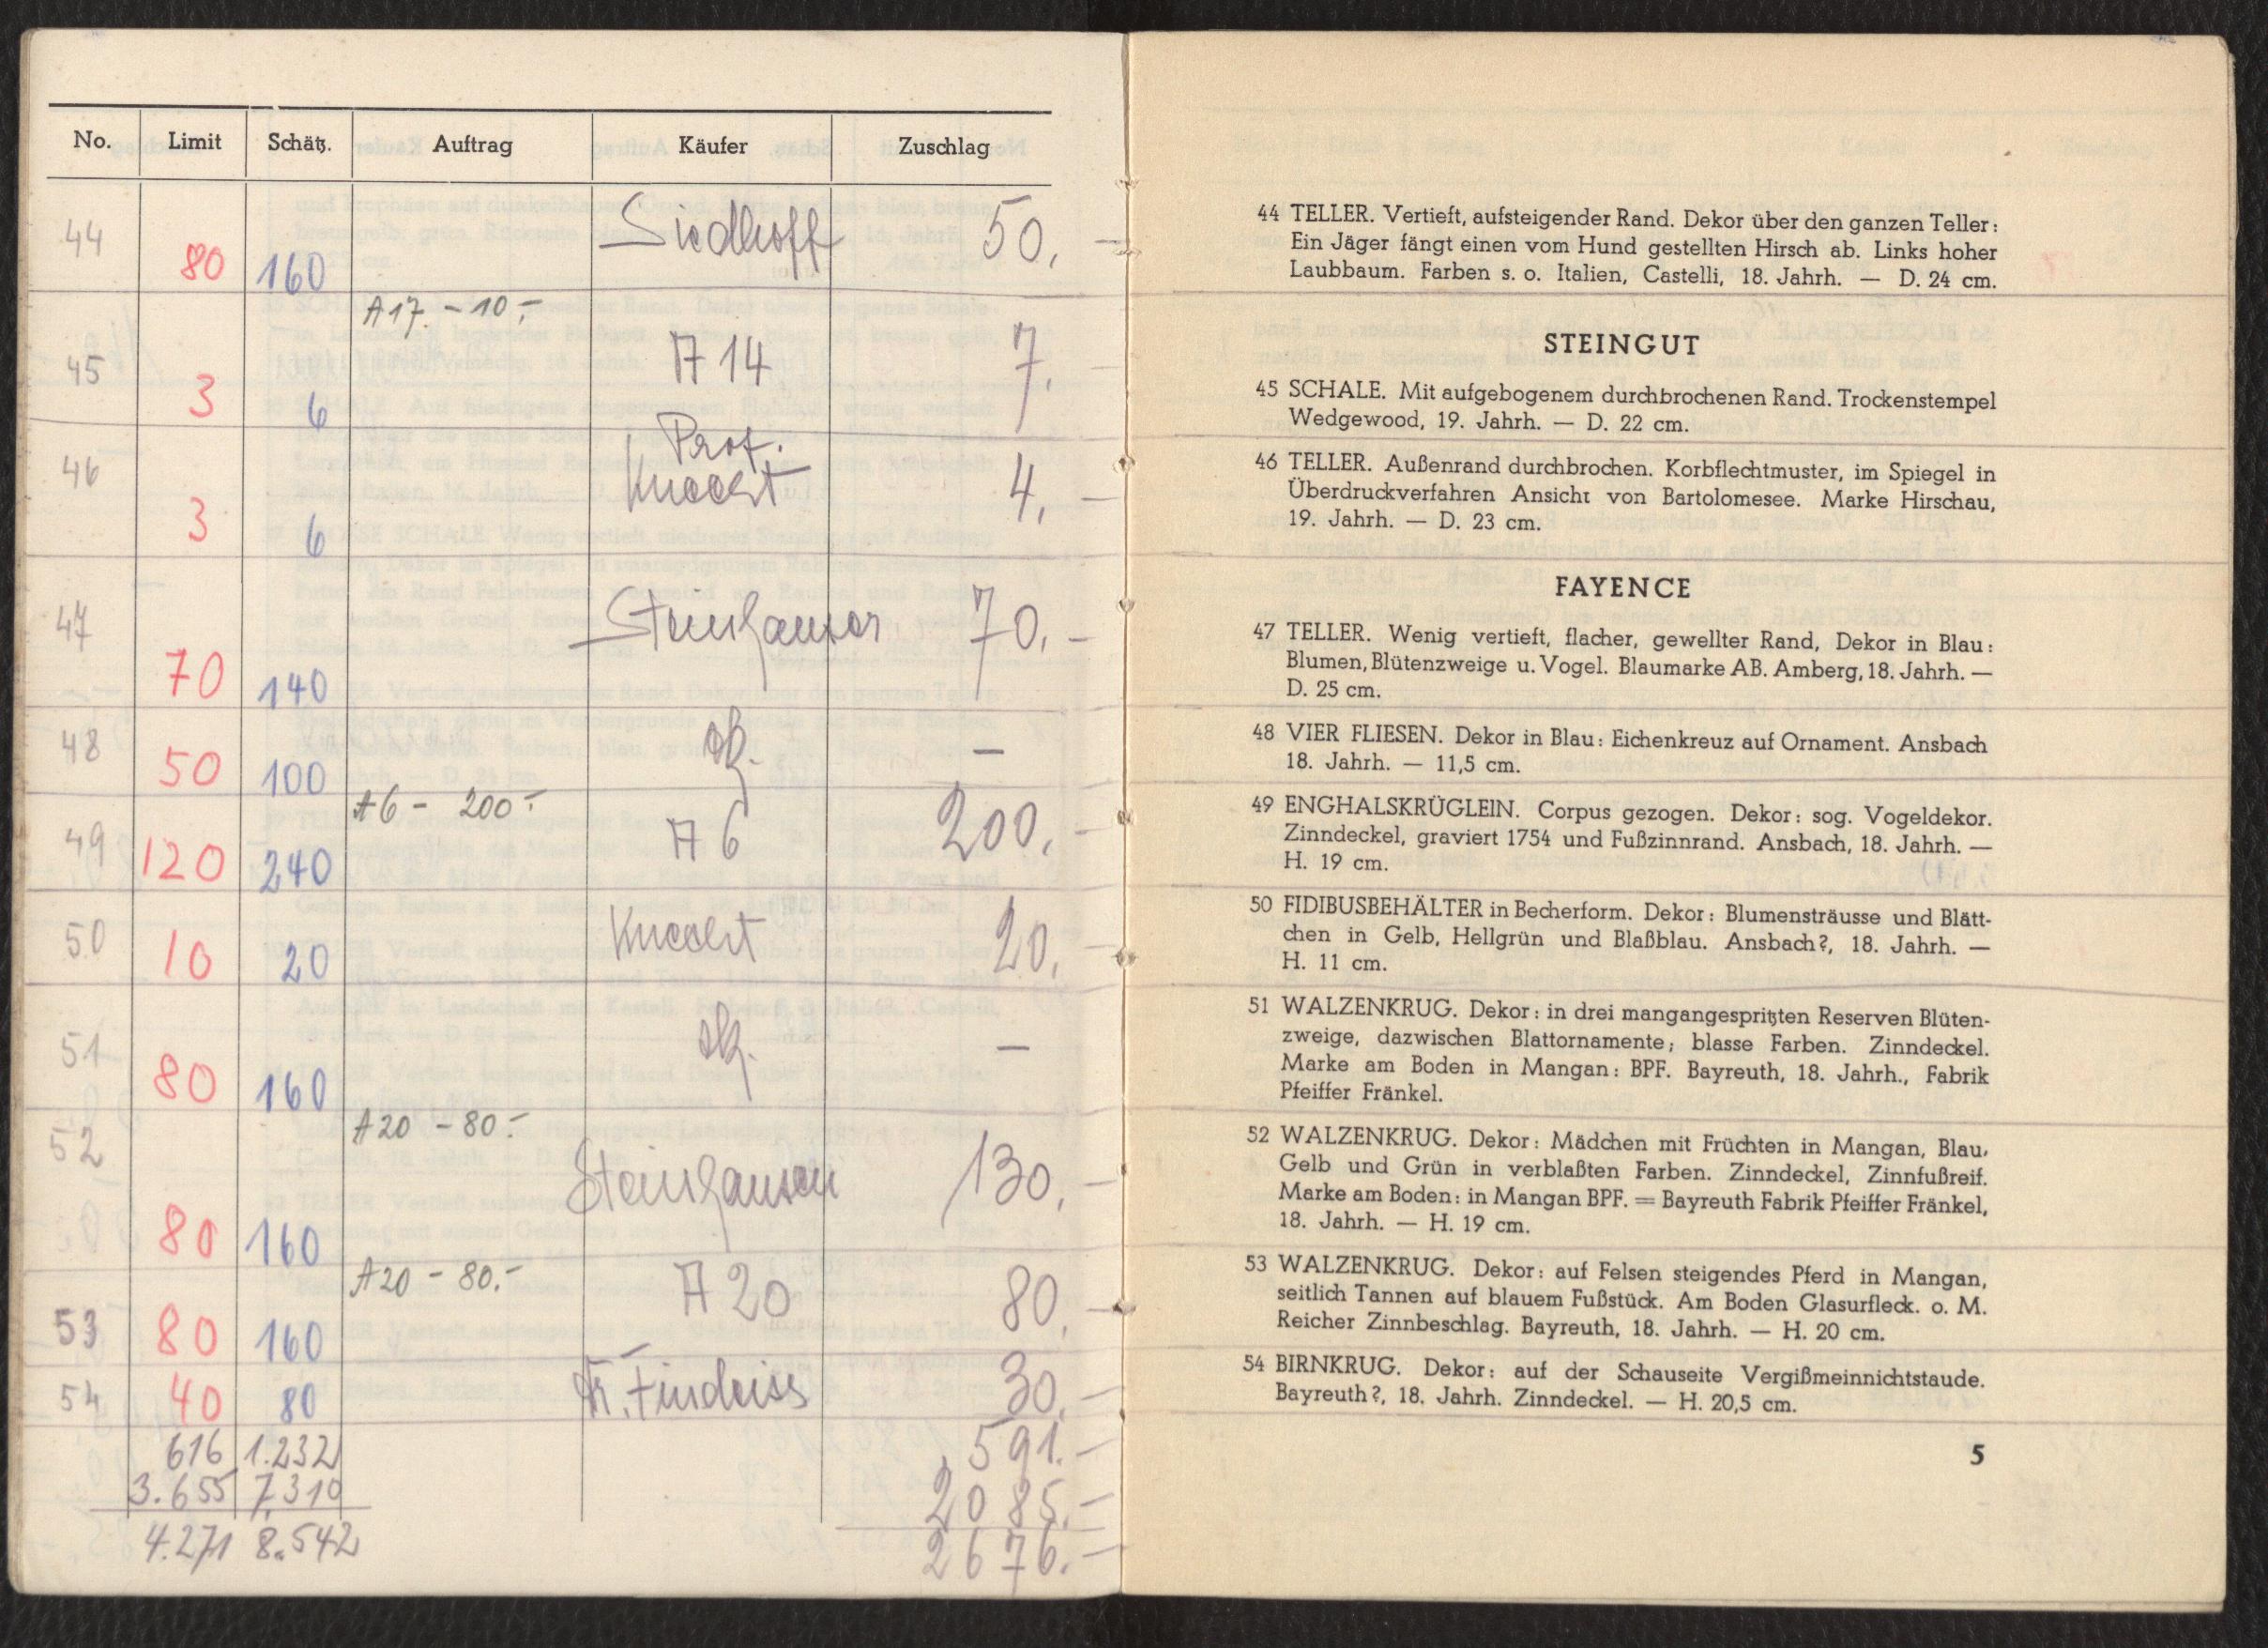 No. Limit Schätz. Auftrag Käufer Zuschlag
44 80 160 Siedhoff 50.-
A17. - 10.-
45 3 6 A 14 7.-
46 3 6 Prof. Knecht 4.-
47 70 140 Steinhauser 70.-
48 50 100 —
A6 - 200.-
49 120 240 A 6 200.-
50 10 20 Knecht 20.-
51 80 160 —
A20 - 80.-
52 80 160 Steinhausen 130.-
A20 - 80.-
53 80 160 A 20 80.-
54 40 80 Fr. Findeiss 30.-
616 1.232 591.-
3.655 7.310 2085.-
4.271 8.542 2676.-
44 TELLER. Vertieft, aufsteigender Rand. Dekor über den ganzen Teller:
Ein Jäger fängt einen vom Hund gestellten Hirsch ab. Links hoher
Laubbaum. Farben s. o. Italien, Castelli, 18. Jahrh. — D. 24 cm.
STEINGUT
45 SCHALE. Mit aufgebogenem durchbrochenen Rand. Trockenstempel
Wedgewood, 19. Jahrh. — D. 22 cm.
46 TELLER. Außenrand durchbrochen. Korbflechtmuster, im Spiegel in
Überdruckverfahren Ansicht von Bartolomesee. Marke Hirschau,
19. Jahrh. — D. 23 cm.
FAYENCE
47 TELLER. Wenig vertieft, flacher, gewellter Rand, Dekor in Blau:
Blumen, Blütenzweige u. Vogel. Blaumarke AB. Amberg, 18. Jahrh. —
D. 25 cm.
48 VIER FLIESEN. Dekor in Blau: Eichenkreuz auf Ornament. Ansbach
18. Jahrh. — 11,5 cm.
49 ENGHALSKRÜGLEIN. Corpus gezogen. Dekor: sog. Vogeldekor.
Zinndeckel, graviert 1754 und Fußzinnrand. Ansbach, 18. Jahrh. —
H. 19 cm.
50 FIDIBUSBEHÄLTER in Becherform. Dekor: Blumensträusse und Blätt-
chen in Gelb, Hellgrün und Blaßblau. Ansbach?, 18. Jahrh. —
H. 11 cm.
51 WALZENKRUG. Dekor: in drei mangangespritzten Reserven Blüten-
zweige, dazwischen Blattornamente; blasse Farben. Zinndeckel.
Marke am Boden in Mangan: BPF. Bayreuth, 18. Jahrh., Fabrik
Pfeiffer Fränkel.
52 WALZENKRUG. Dekor: Mädchen mit Früchten in Mangan, Blau,
Gelb und Grün in verblaßten Farben. Zinndeckel, Zinnfußreif.
Marke am Boden: in Mangan BPF. = Bayreuth Fabrik Pfeiffer Fränkel,
18. Jahrh. — H. 19 cm.
53 WALZENKRUG. Dekor: auf Felsen steigendes Pferd in Mangan,
seitlich Tannen auf blauem Fußstück. Am Boden Glasurfleck. o. M.
Reicher Zinnbeschlag. Bayreuth, 18. Jahrh. — H. 20 cm.
54 BIRNKRUG. Dekor: auf der Schauseite Vergißmeinnichtstaude.
Bayreuth?, 18. Jahrh. Zinndeckel. — H. 20,5 cm.
5